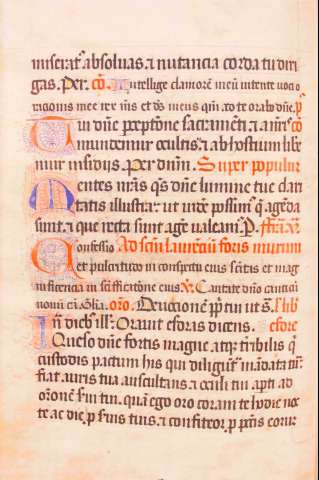 miserat᷒ absoluas. ⁊ nutancia corda tu diri
gas. Per. cō. Intellige clamorē meū intende uoci o
rationis mee rex m̄s et dꝰ meus qm̄ ad te orabo dn̄e. p̄
Tui dn̄e p̄ceptione sacramēti ⁊ a
mundemur occultis ⁊ ab hostium libe
mur insidiis. Per dn̄m. Super populum
Mentes n̄ras q̄s dn̄e lumine tue clari
tatis illustra. ut uide᷑ possim᷒ q̄ agēda
sunt. ⁊ que recta sunt age᷑ ualeam᷒. P.
Confessio Ad sc̄m laurēciū foris murum
et pulcritudo in conspectu eius sc̄itas et mag
nificencia in sc̄ificatione eius. Cantate dn̄o canticū
nouū oro. p̄
In dieb᷒ ill᷑. Orauit esdras dicens. esdre
Queso dn̄e fortis magne atq᷒ t̄ribilis q̄
custodis pactum his qui diligūt mādata
fiāt aures tue auscultantes ⁊ oculi tui apti. ad
orōnem serui tui. quā ego oro coram te hodie noc
te ac die. p seruis tuis. ⁊ confiteor p